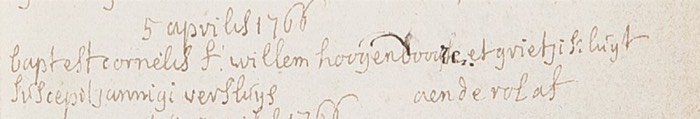 5 aprilis 1766
baptest cornelis f: willem hooijendoorn et grietji sluijt
suscepit jannigi versluijs aen de rol af